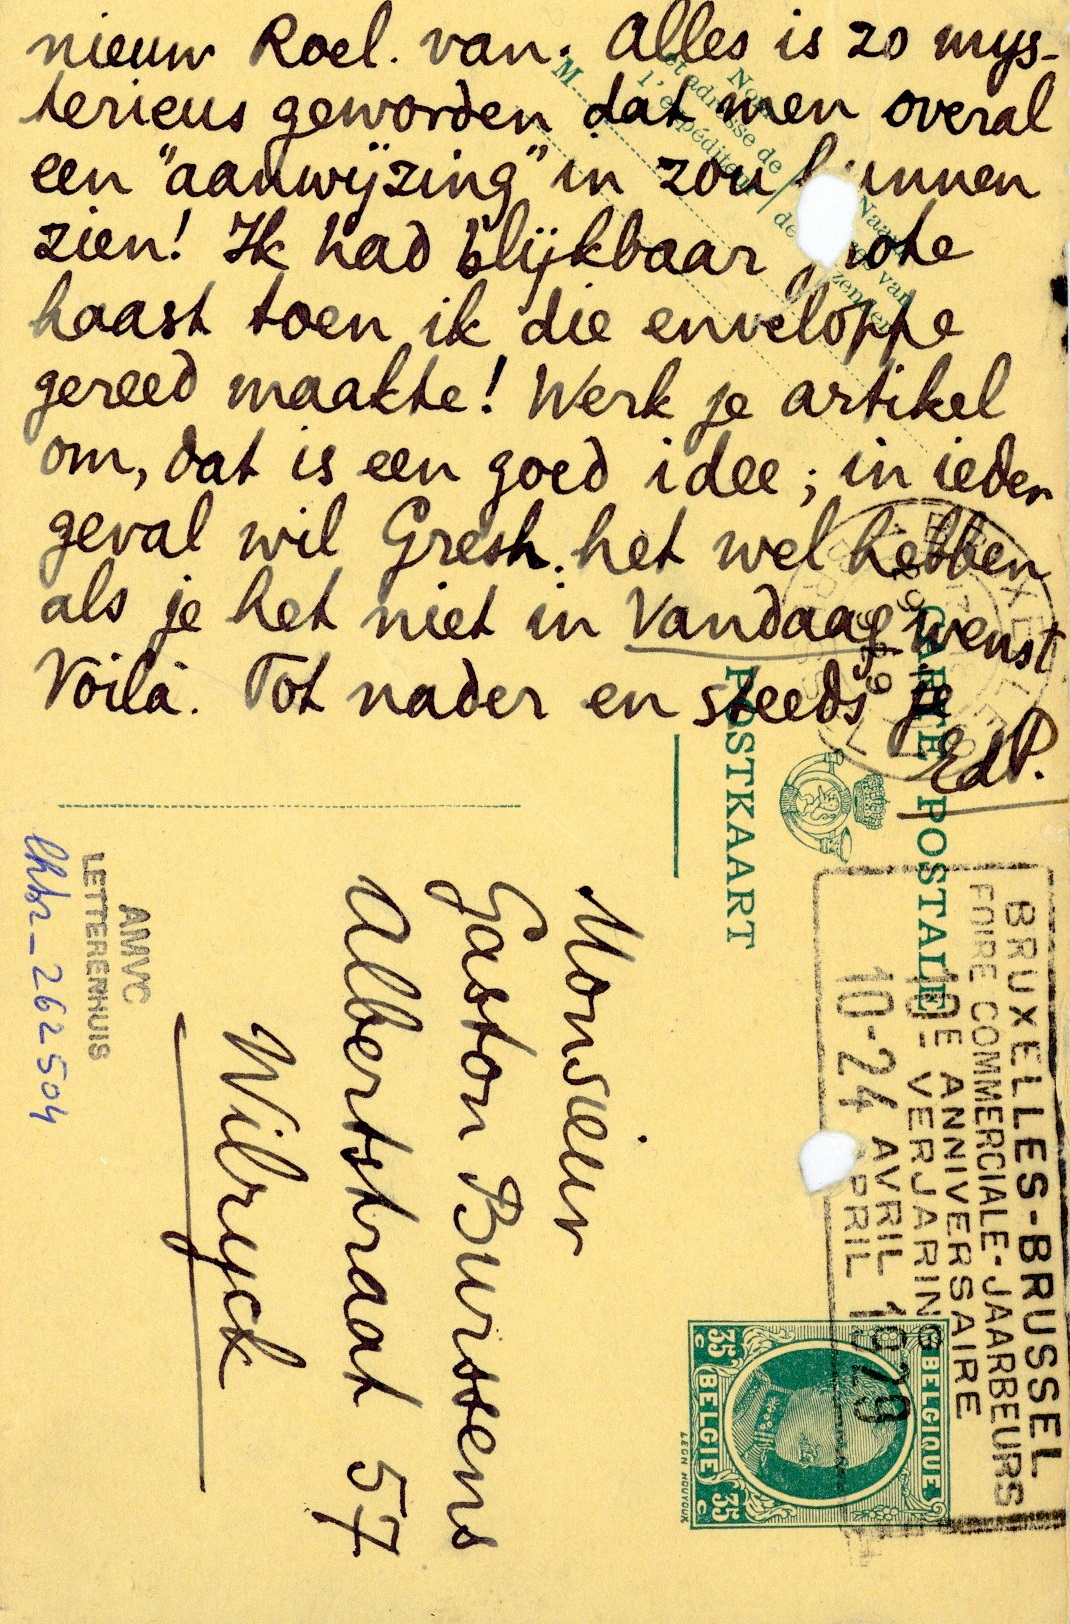 nieuw Roel. van. Alles is zo mys-
terieus geworden dat men overal
een "aanwijzing" in zou kunnen
zien! Ik had blijkbaar grote
haast toen ik die enveloppe
gereed maakte! Werk je artikel
om, dat is een goed idee; in ieder
geval wil Gresh. het wel hebben
als je het niet in Vandaag wenst
Voilà. Tot nader en steeds je
EdP.
Nom
et adresse de
l'expéditeur
M
Naam
van
CARTE POSTALE
POSTKAART
BRUXELLES-BRUSSEL
FOIRE COMMERCIALE-JAARBEURS
10E ANNIVERSAIRE
10- VERJARING
10-24 AVRIL 1929
APRIL
BELGIQUE
35 c 35 c
BELGIE
Monsieur
Gaston Burssens
Albertstraat 57
Wilryck
AMVC
LETTERENHUIS
lhbr_262504